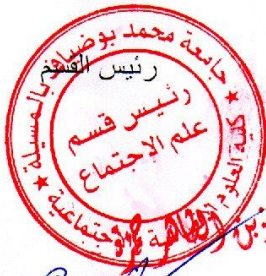 رئيس القسم
جامعة محمد بوضياف بالمسيلة
رئيس قسم
علم الاجتماع
كلية العلوم
الاجتماعية
بن